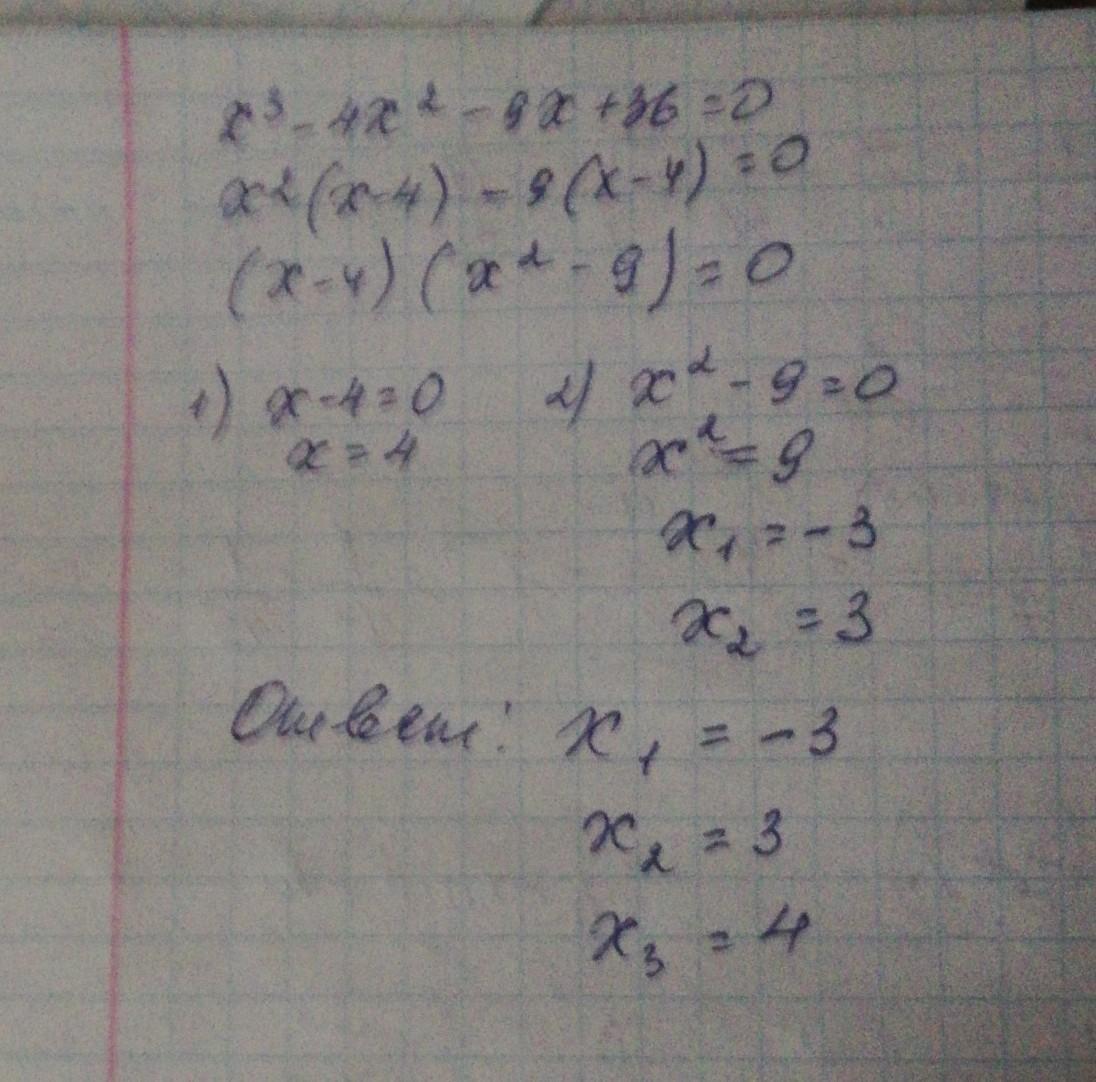 x³ - 4x² - 9x + 36 = 0
x²(x-4) - 9(x-4) = 0
(x-4)(x² - 9) = 0
1) x-4=0 2) x² - 9 = 0
x = 4 x² = 9
x₁ = -3
x₂ = 3
Ответ: x₁ = -3
x₂ = 3
x₃ = 4